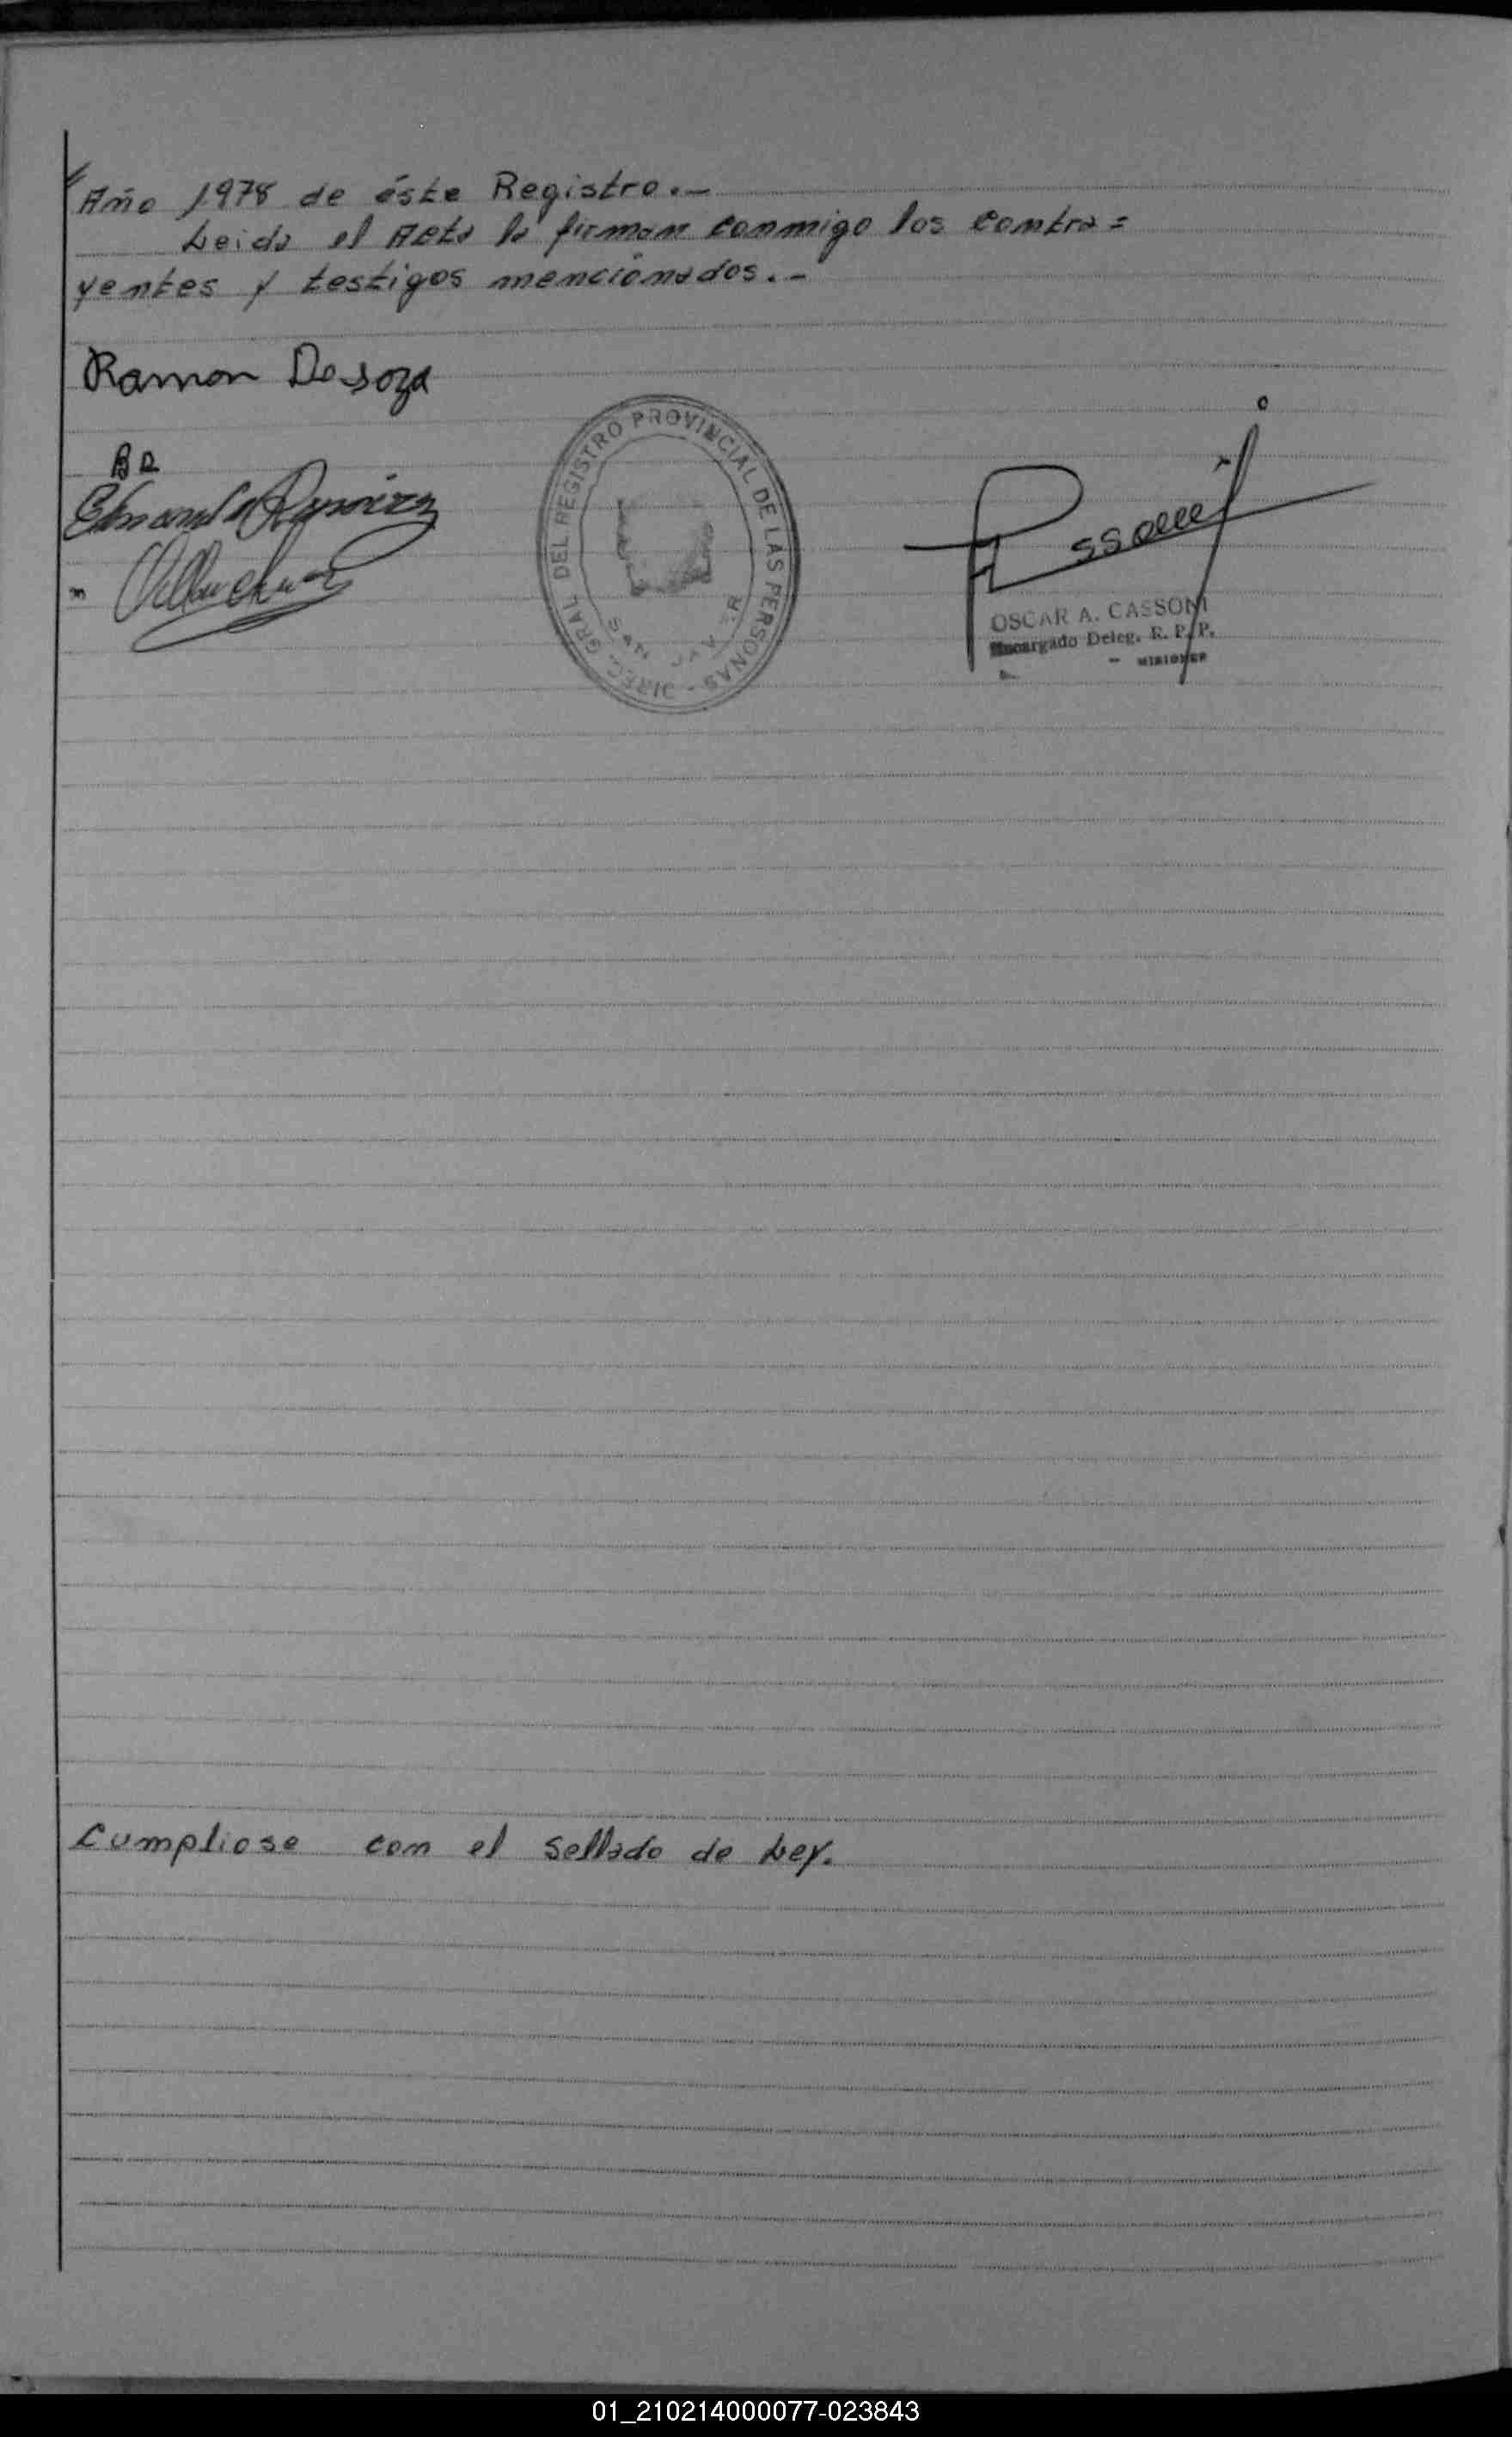 Año 1978 de éste Registro.-
Leida el Acta la firman conmigo los contra=
yentes y testigos mencionados.-
Ramon De soza
B R
Ramirez
DIREC. GRAL DEL REGISTRO PROVINCIAL DE LAS PERSONAS -
SAN JAVIER
OSCAR A. CASSONI
Encargado Deleg. R. P. P.
- MISIONES
Cumpliose con el sellado de Ley.
01_210214000077-023843